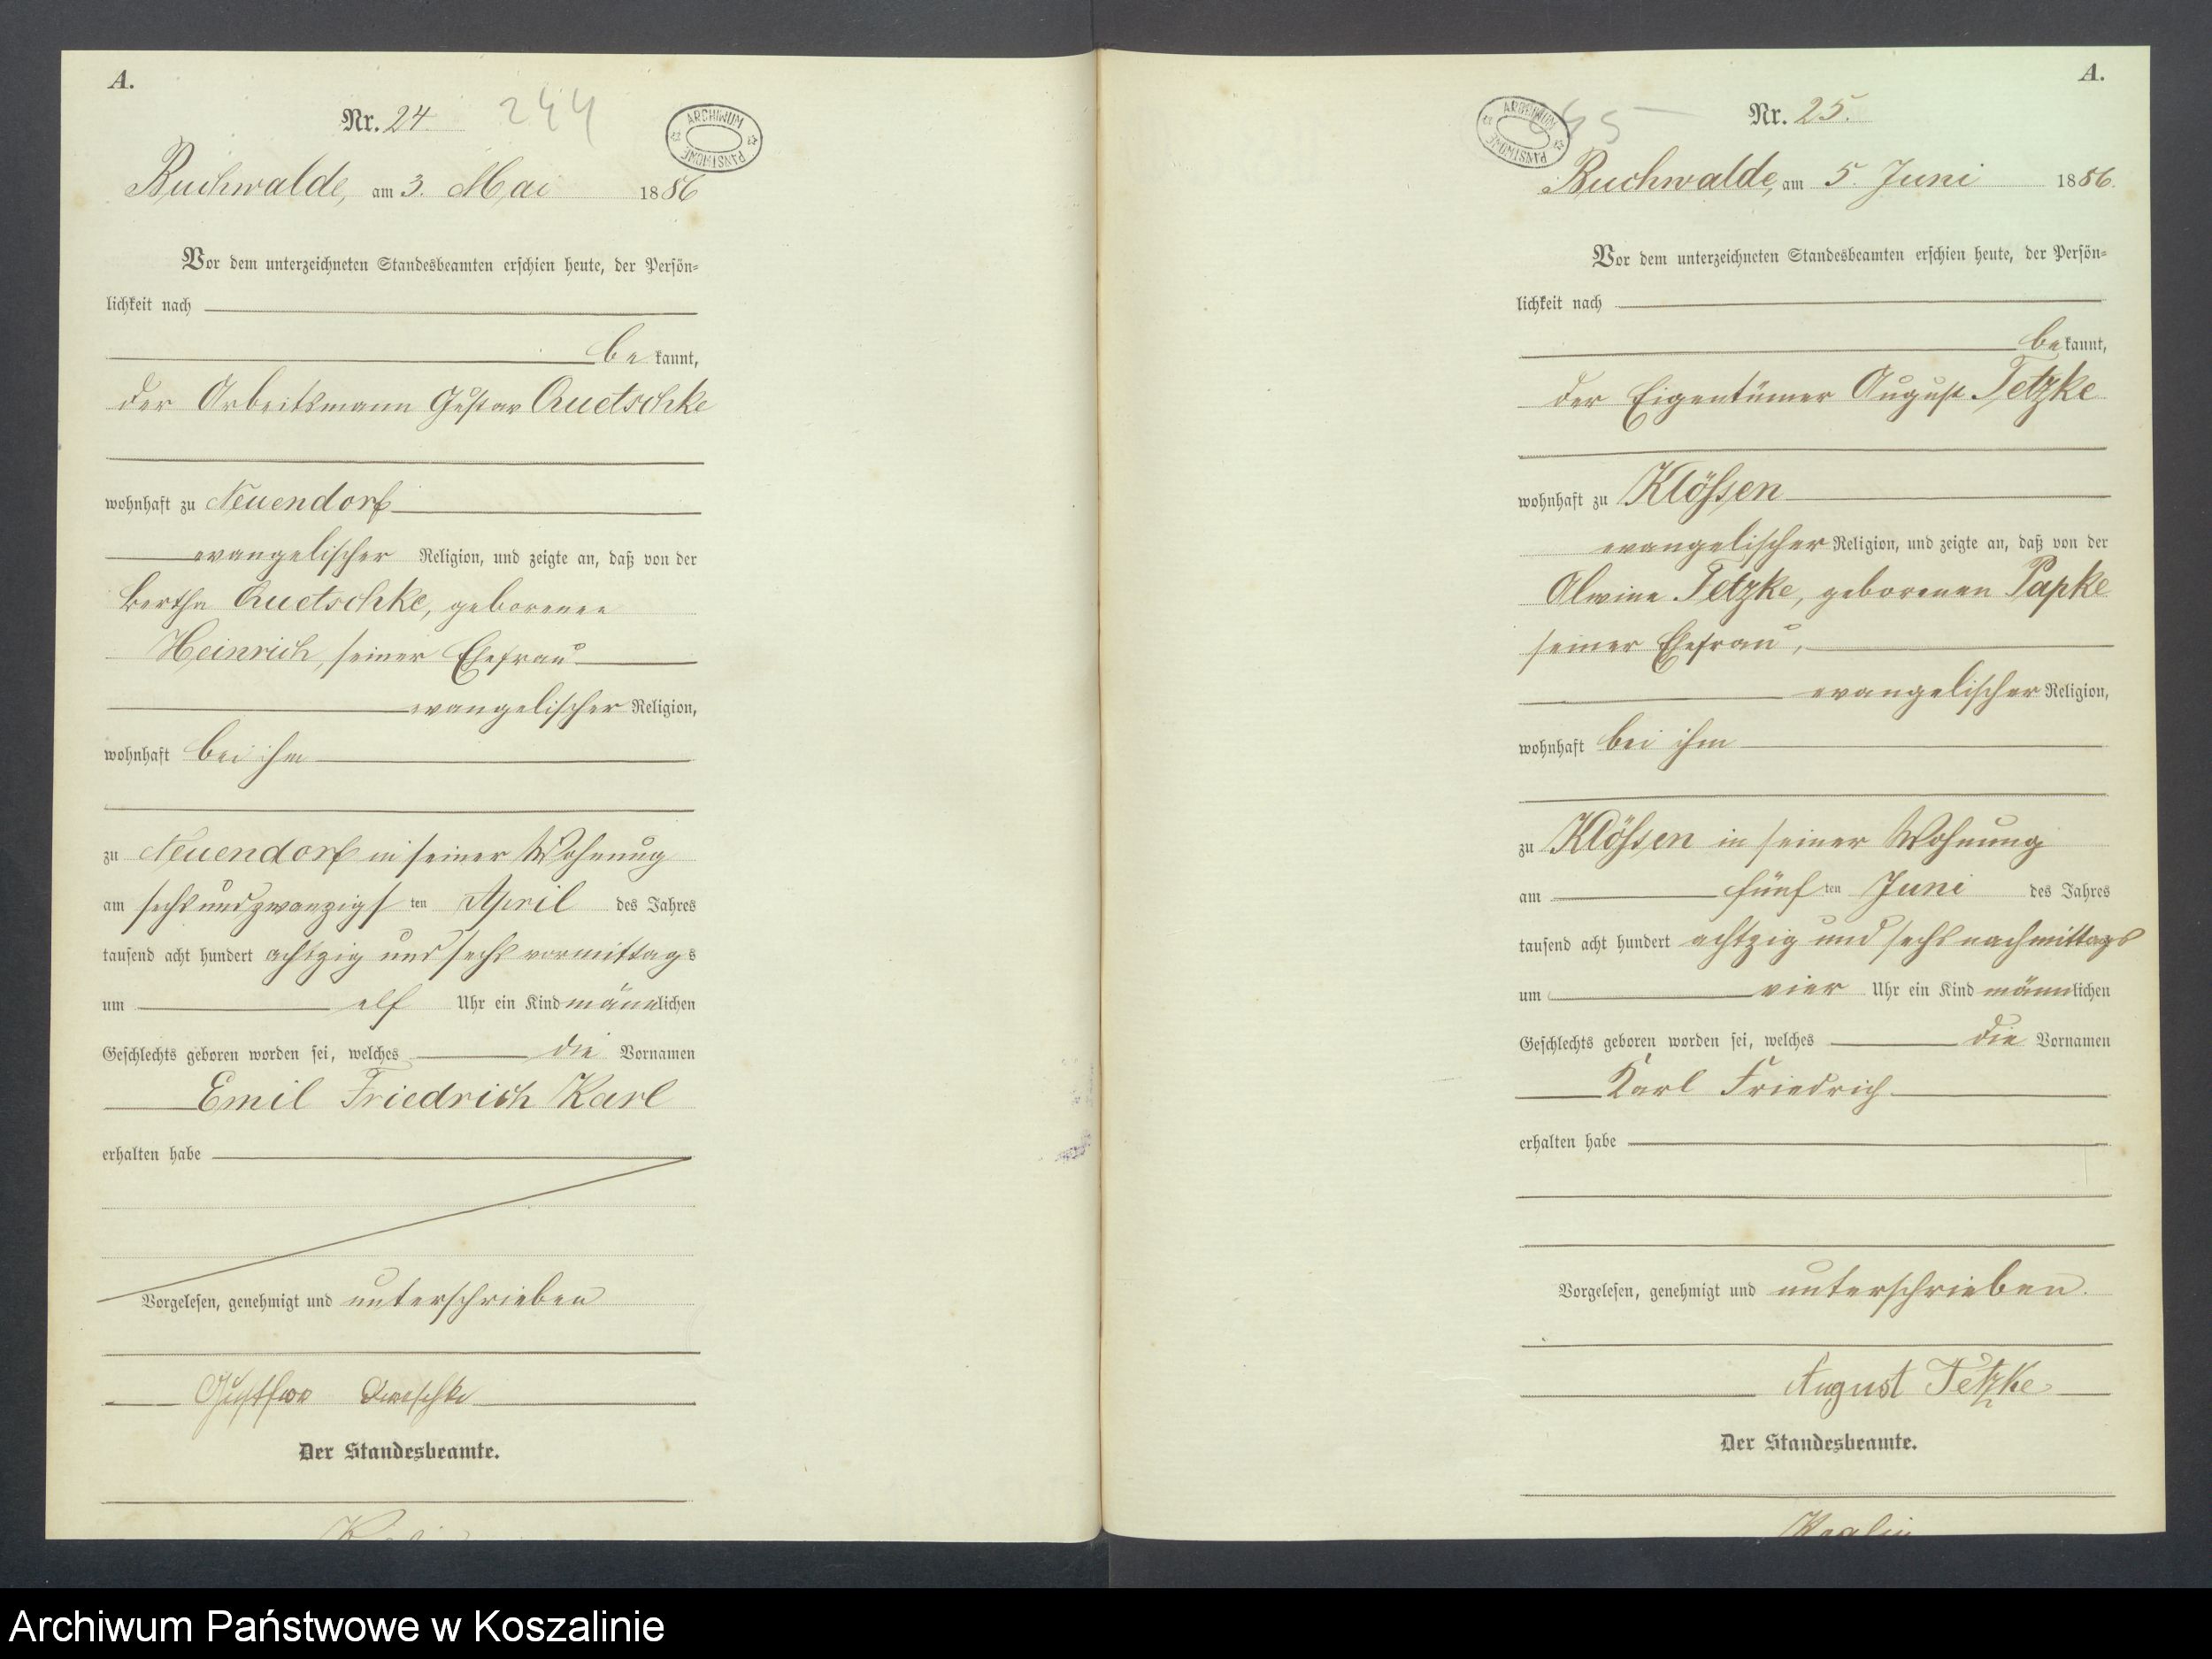 A.
Nr. 24.
244
ARCHIWUM PAŃSTWOWE
Buchwalde, am 3. Mai 1886
Vor dem unterzeichneten Standesbeamten erschien heute, der Persön-
lichkeit nach
be kannt,
der Arbeitsmann Gustav Quetschke
wohnhaft zu Neuendorf
evangelischer Religion, und zeigte an, daß von der
Bertha Quetschke, geborenen
Heinrich, seiner Ehefrau
evangelischer Religion,
wohnhaft bei ihm
zu Neuendorf in seiner Wohnung
am sechsundzwanzigs ten April des Jahres
tausend acht hundert achtzig und sechs vormittags
um elf Uhr ein Kind männlichen
Geschlechts geboren worden sei, welches die Vornamen
Emil Friedrich Karl
erhalten habe
Vorgelesen, genehmigt und unterschrieben
Der Standesbeamte.
A.
Nr. 25.
ARCHIWUM PAŃSTWOWE
Buchwalde, am 5. Juni 1886.
Vor dem unterzeichneten Standesbeamten erschien heute, der Persön-
lichkeit nach
be kannt,
der Eigentümer August Tetzke
wohnhaft zu Klößen
evangelischer Religion, und zeigte an, daß von der
Alwine Tetzke, geborenen Papke
seiner Ehefrau,
evangelischer Religion,
wohnhaft bei ihm
zu Klößen in seiner Wohnung
am fünf ten Juni des Jahres
tausend acht hundert achtzig und sechs nachmittags
um vier Uhr ein Kind männlichen
Geschlechts geboren worden sei, welches die Vornamen
Karl Friedrich
erhalten habe
Vorgelesen, genehmigt und unterschrieben.
August Tetzke
Der Standesbeamte.
Archiwum Państwowe w Koszalinie